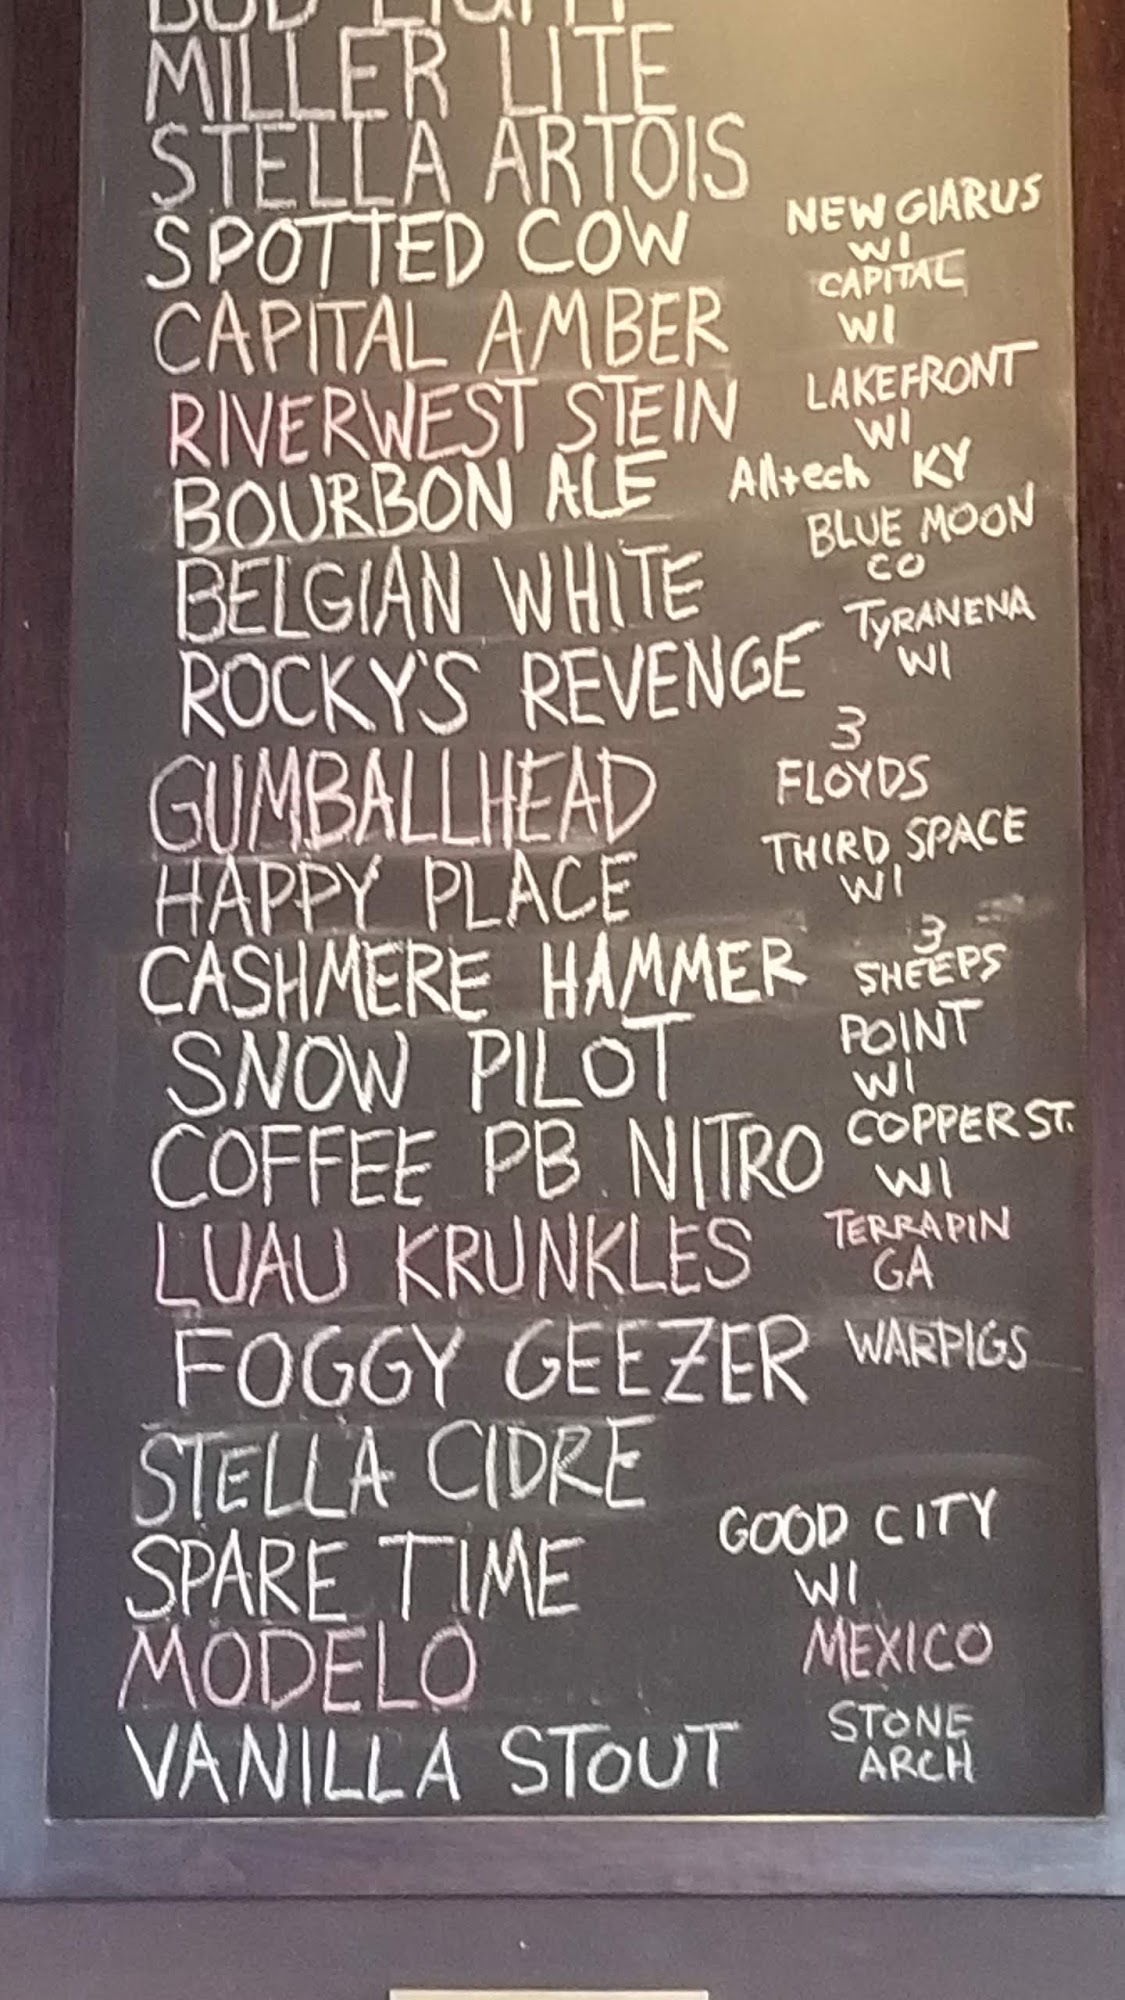 BUD LIGHT
MILLER LITE
STELLA ARTOIS
SPOTTED COW NEW GLARUS
WI
CAPITAL AMBER CAPITAL
WI
RIVERWEST STEIN LAKEFRONT
WI
BOURBON ALE Alltech KY
BELGIAN WHITE BLUE MOON
CO
ROCKY'S REVENGE TYRANENA
WI
GUMBALLHEAD 3
FLOYDS
HAPPY PLACE THIRD SPACE
WI
CASHMERE HAMMER 3
SHEEPS
SNOW PILOT POINT
WI
COFFEE PB NITRO COPPER ST.
WI
LUAU KRUNKLES TERRAPIN
GA
FOGGY GEEZER WARPIGS
STELLA CIDRE
SPARE TIME GOOD CITY
WI
MODELO MEXICO
VANILLA STOUT STONE
ARCH